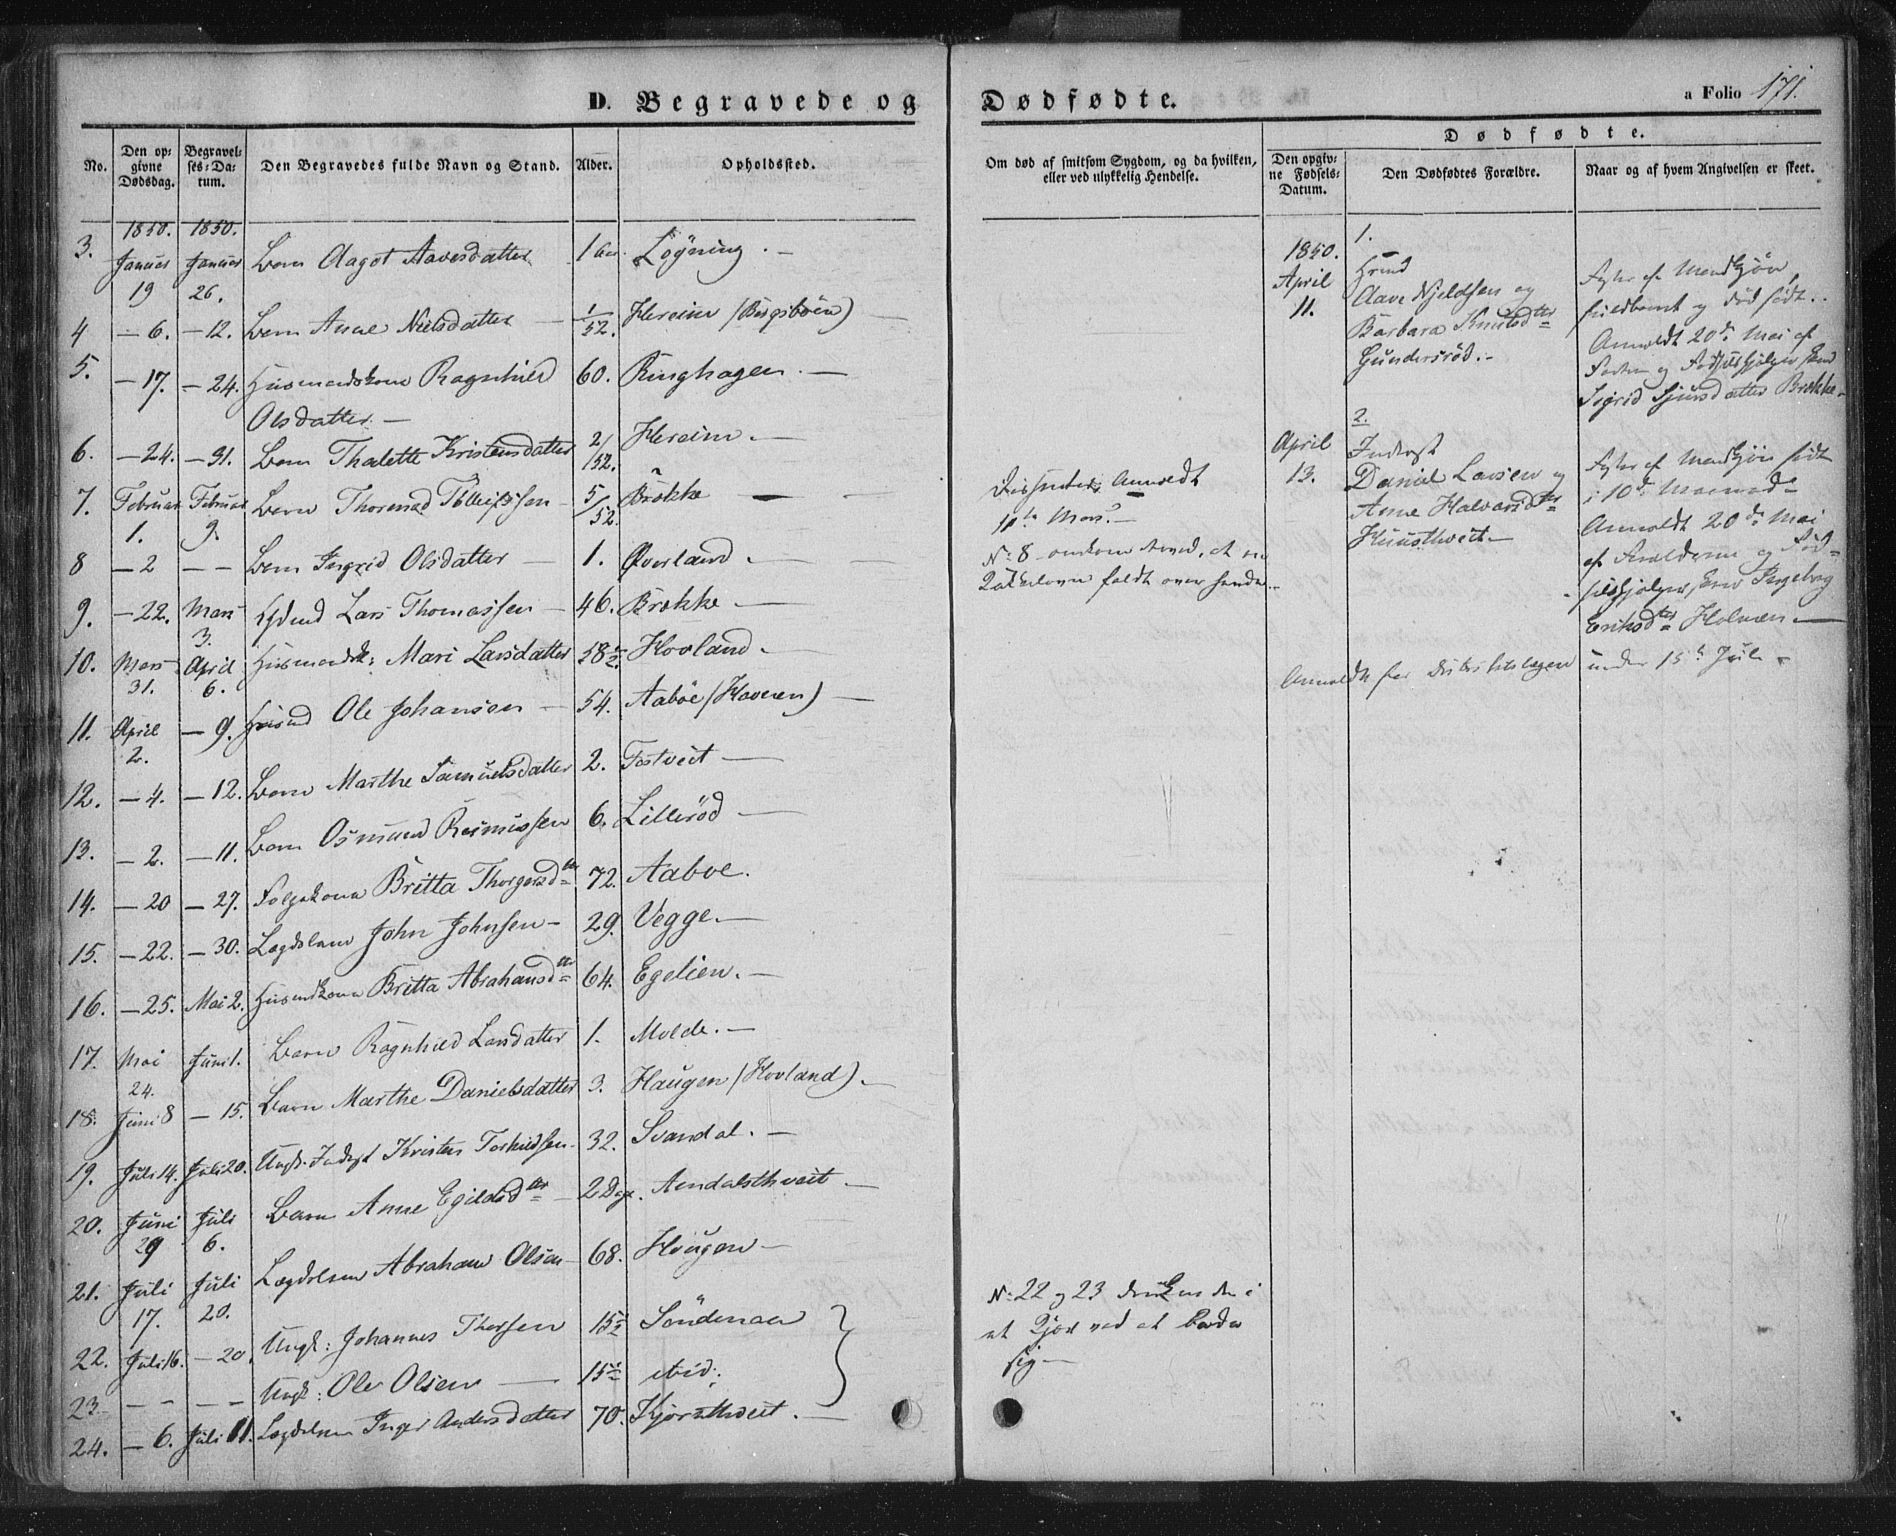 D. Begravede og
Dødfødte.
a Folio 171.
No.
Den op-
givne
Dødsdag.
Begravel-
ses-Da-
tum.
Den Begravedes fulde Navn og Stand.
Alder.
Opholdssted.
Om død af smitsom Sygdom, og da hvilken,
eller ved ulykkelig Hendelse.
Dødfødte.
Den opgiv-
ne Fødsels-
Datum.
Den Dødfødtes Forældre.
Naar og af hvem Angivelsen er skeet.
1850. 1850.
3. Januar Januar Barn Aagot Aavesdatter 1 Løgning. —
19 26.
4 — 6. — 12. Barn Anne Nielsdatter — 1/52. Hereim (Bergsbøen) —
5. — 17. — 24. Huusmandskone Ragnhild 60. Ringhagen. —
Olsdatter. —
6. — 24. — 31. Barn Thalette Kristensdatter 2/52. Hereim. —
7. Februar Februar Barn Thormod 5/52. Brøkke —
1. 9.
8 — 2 — — Barn Ingrid Olsdatter — 1. Øverland. —
9. — 22. Mars Lars Thomassen — 46. Brøkke —
3.
10. Mars April Huusmandsk: Mari Larsdatter 58½. Hovland. —
31. 6.
11. April — 9. Ole Johansen — 54. Aabøe (Haven) —
2.
12. — 4. — 12. Barn Marthe Samuelsdatter 2. Tostveit —
13. — 2. — 11. Barn Osmund Rasmussen 6. Lillerød —
14. — 20 — 27. Folgekone Britta Thorgersdtr 72. Aaboe.
15. — 22. — 30. Lægdslem John Johnsen — 29. Vegge. —
16. — 25. Mai 2. Britta Abrahamsdtr 64. Egelien. —
17. Mai Juni 1. Barn Ragnhild Larsdatter 1. Molde. —
24.
18. Juni 8 — 15. Barn Marthe Danielsdatter 3. Haugen (Hovland). —
19. Juli 14. Juli 20. Ungk. Inderst Kristen Torkildsen 32. Svandal. —
20. Juni Juli Barn Anne Egildsdtr — 2 Dage. Aendalsthveit —
29 6.
21. Juli Juli Lægdslem Abraham Olsen 68. Haugen —
17. 20.
22. Juli 16. — 20. Ungk: Johannes Thorsen 15½ Søndenaa
23. — — — — Ungk: Ole Olsen — 15½ ibid:
24. — 6. Juli 11. Lægdslem Inger Andersdatter 70. Kjørsthveit. —
Anmeldt
10de Mars. —
N: 8 omkom derved, at en
Kakkelovn faldt over hende. —
N: 22 og 23 druknede i
et Kjær ved at bade
sig —
1850.
April
11.
1.
Aave Kjeldsen og
Barbara Knutsdtr
Gundersrød. —
Foster af Mandkjøn
fuldbaaret og død født. .
Anmeldt 20de Mai af
Faderen og Fødselshjelpersken
Sigrid Sjursdatter Brøkke. —
April
13.
2.
Inderst
Daniel Larsen og
Anne Halvorsdtr
Kuusthveit —
Foster af Mandkjøn født
i 10de Maaned
Anmeldt 20de Mai
af Forældrene og Fød-
selshjelpersken Ingeborg
Eriksdtr Holmen. —
Anmeldt for Distriktslægen under 15de Juli. —